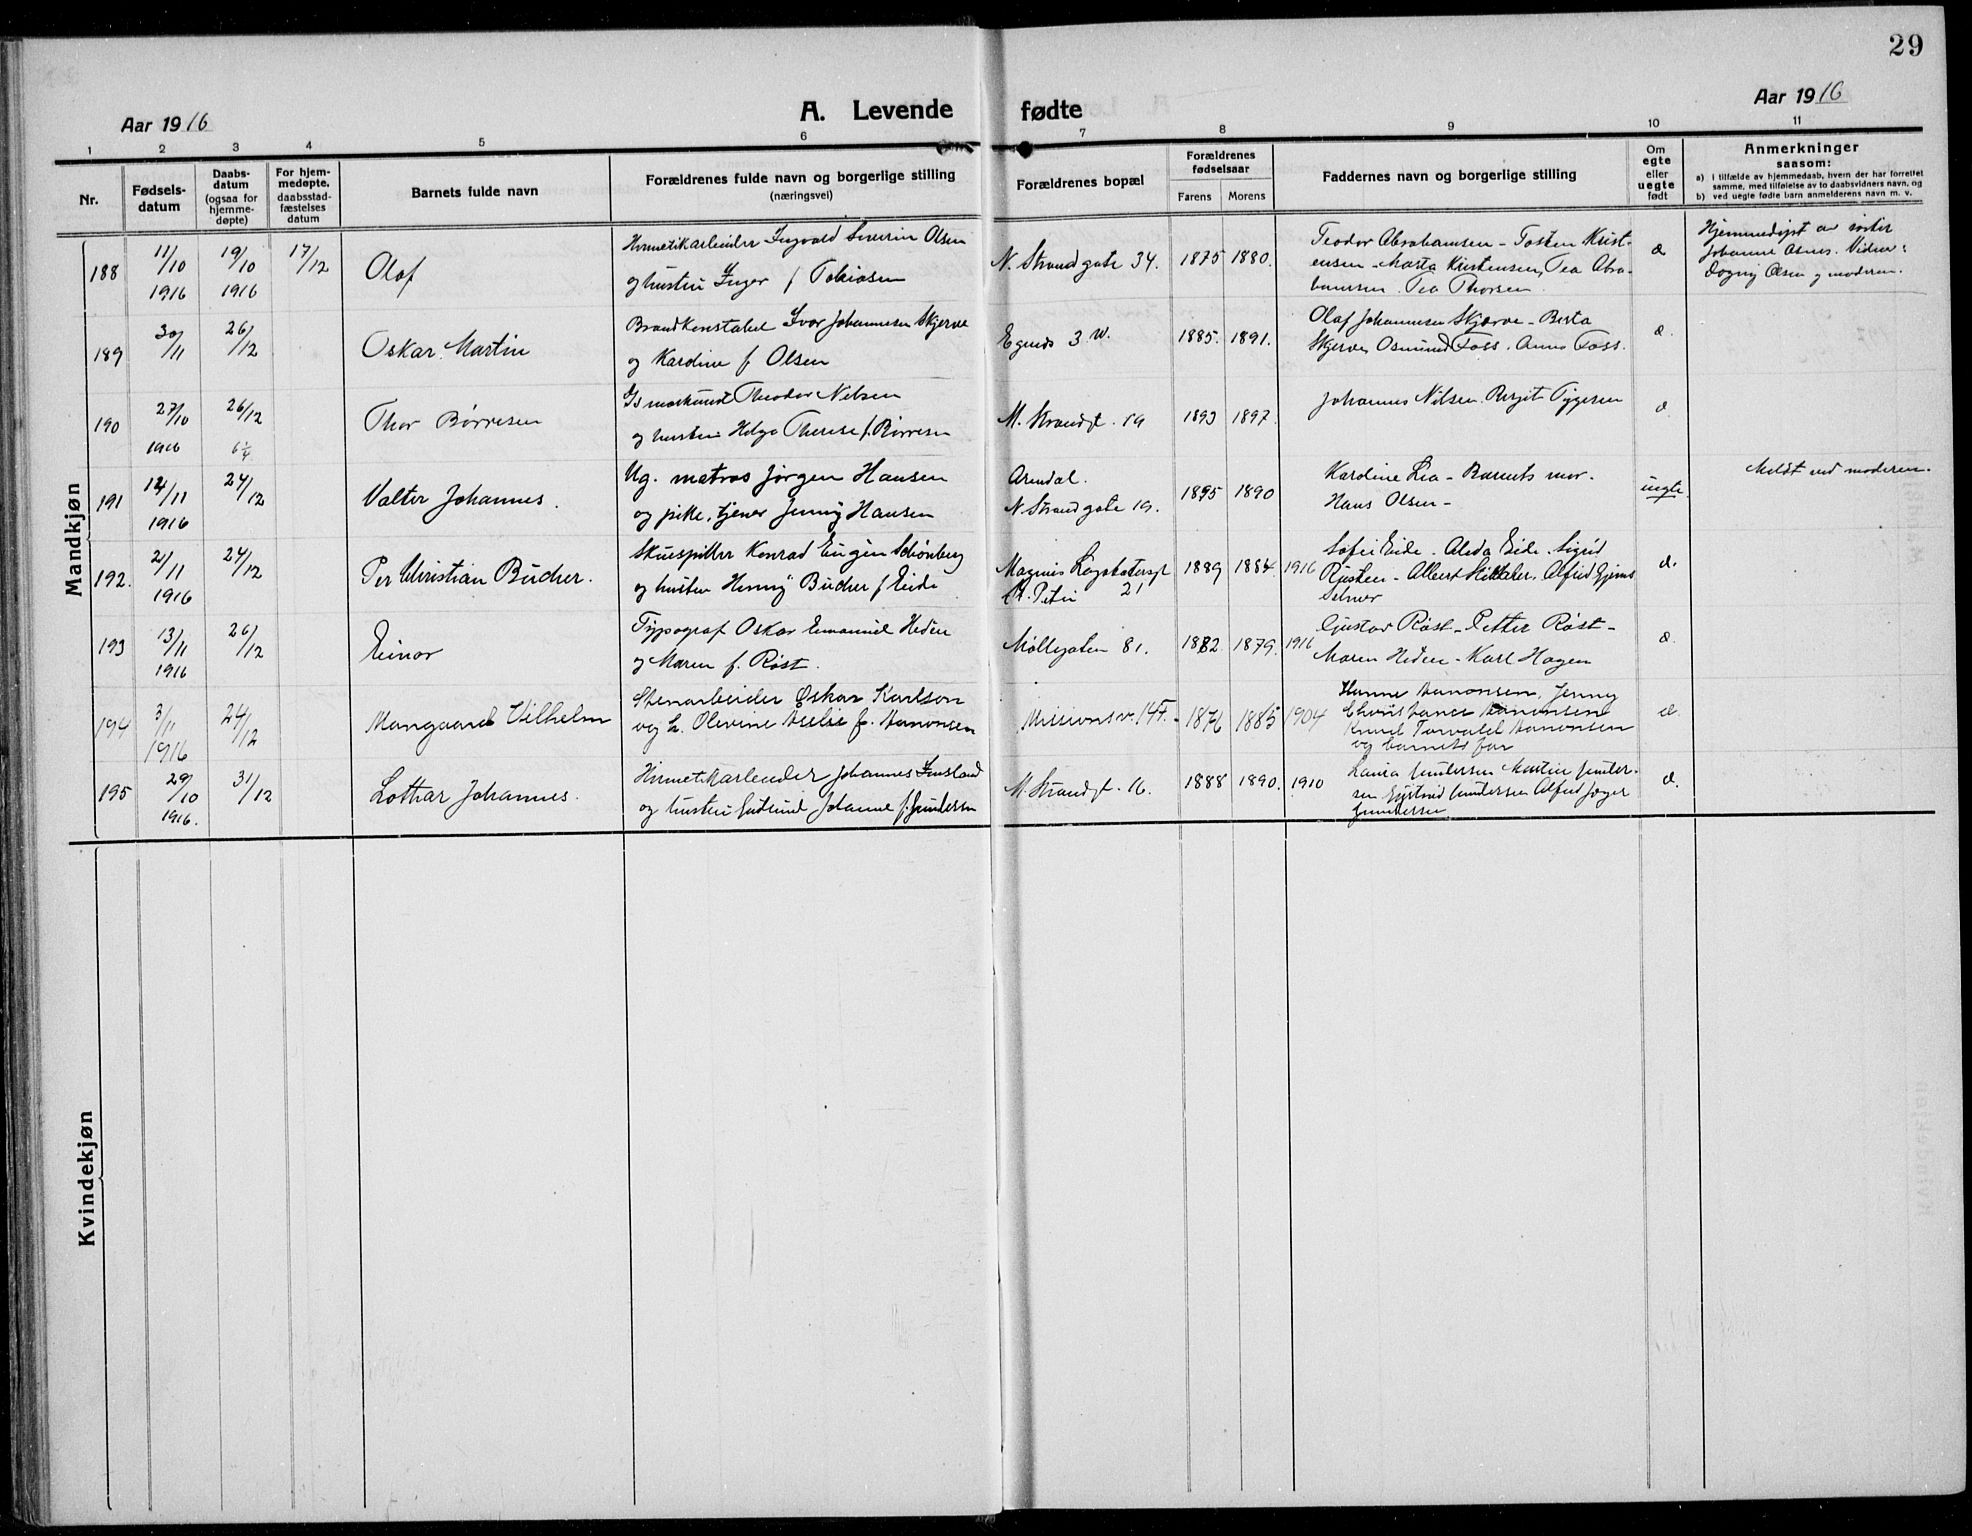 29
Aar 1916
A. Levende fødte
Aar 1916
1 2 3 4 5 6 7 8 9 10 11
Nr.
Fødsels-
datum
Daabs-
datum
(ogsaa for
hjemme-
døpte)
For hjem-
medøpte,
daabsstad-
fæstelses
datum
Barnets fulde navn
Forældrenes fulde navn og borgerlige stilling
(næringsvei)
Forældrenes bopæl
Forældrenes
fødselsaar
Farens Morens
Faddernes navn og borgerlige stilling
Om
egte
eller
uegte
født
Anmerkninger
saasom:
a) i tilfælde av hjemmedaab, hvem der har forrettet
samme, med tilføielse av to daabsvidners navn, og
b) ved uegte fødte barn anmelderens navn m. v.
Mandkjøn
188
11/10
1916
19/10
1916
17/12
Olaf
Hermetikarbeider Ingvald Severin Olsen
og hustru Inger f Tobiasen
N. Strandgate 34.
1875 1880.
Teodor Abrahamsen - Tosten Krist-
ensen - Marta Kristensen, Tea Abra-
hamsen. Tea Thorsen.
Hjemmedøpt av
Johanne
Olsen og moderen.
189
30/11
26/12
Oskar Martin
Brandkonstabel Ivar Johannesen Skjerve
og Kardine f Olsen
Egneds 3 W.
1885. 1891.
Olaf Johannesen Skjerve - Berta
Skjerve, Osmund Foss. Anna Foss.
190
27/10
1916
26/12
Thor Børresen
Theodor Nilsen
og hustru Helga Therese f. Børresen
M. Strandgt. 19
1893 1897.
Johannes Nilsen. Birgit
191
14/11
1916
24/12
Valter Johannes.
Ug. matros Jørgen Hansen
og pike, tjener Jenny Hansen
Arendal.
N. Strandgate 19.
1895 1890
Kardine Lea - Barnets mor.
Hans Olsen -
uegte
Meldt ved moderen.
192.
21/11
1916
24/12
Per Christian Bucher.
Skuespiller Konrad Eugen Schönberg
og hustru Henny Bucher f Eide
Magnus Lagabøtersgt
St. Petri 21
1889 1884. 1916
Sofie Eide. Alvda Eide. Sigrid
193
13/11
1916
26/12
Einar
Typograf Oskar Emanuel Heden
og Maren f. Røst.
Møllegaten 81.
1882 1879. 1916
Gustav Røst - Petter Røst -
Maren Heden - Karl Hagen
194
3/11
1916
24/12
Mangaard Vilhelm
Stenarbeider Oskar Karlson
og h. Olevine Aselse f. Aanonsen
Missionsv. 14F.
1876 1885 1904
Hanne Aanonsen, Jenny
Aanonsen
Knud Torvald Aanonsen
og barnets far
195
29/10
1916.
31/12
Lothar Johannes.
Hermetikarbeider Johannes Fusland
og hustru Gudrund Johanne f. Gundersen
M. Strandgt. 16.
1888 1890. 1910
Laura Gundersen Martin Gunder-
sen Gundersen Alfred Jæger
Gundersen
Kvindekjøn